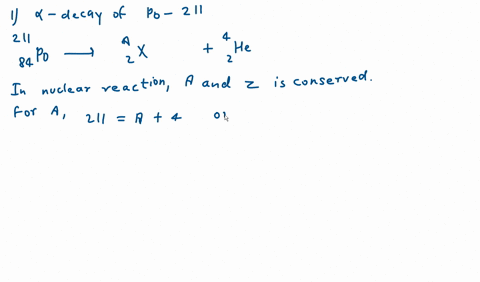 1) α-decay of Po-211
²¹¹₈₄Po ⟶ ᴬ₂X + ⁴₂He
In nuclear reaction, A and z is conserved.
For A, 211 = A + 4